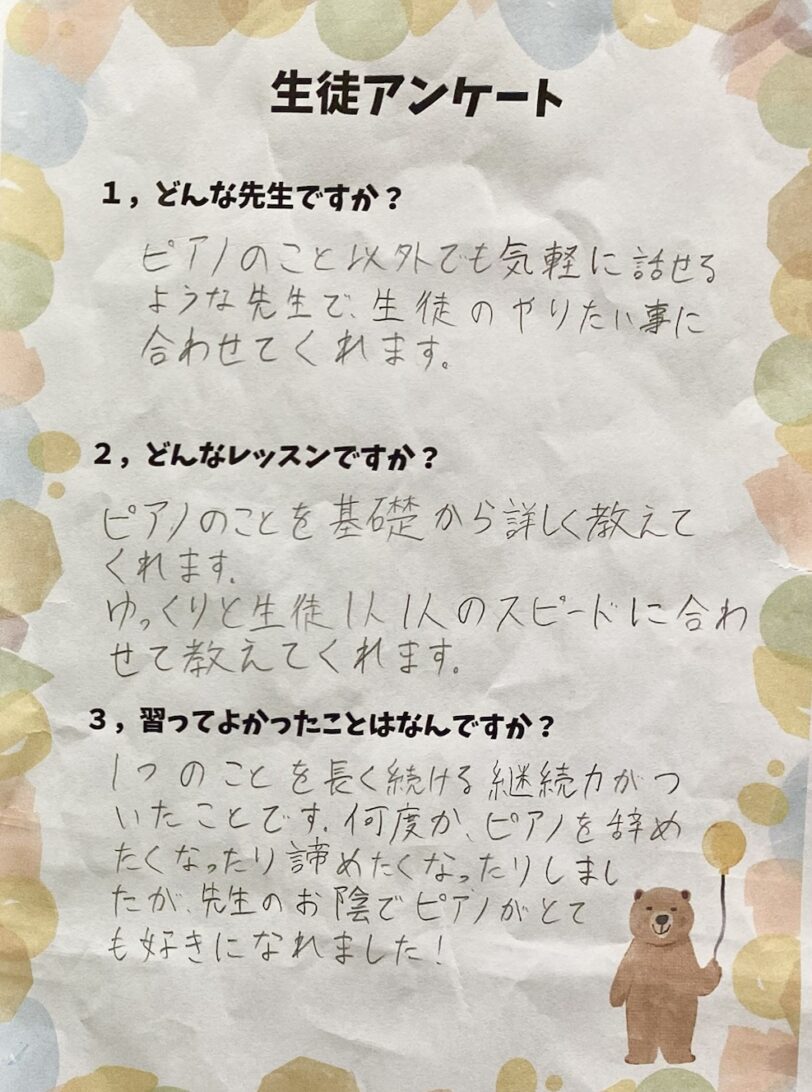 生徒アンケート
１，どんな先生ですか？
ピアノのこと以外でも気軽に話せる
ような先生で、生徒のやりたい事に
合わせてくれます。
２，どんなレッスンですか？
ピアノのことを基礎から詳しく教えて
くれます。
ゆっくりと生徒1人1人のスピードに合わ
せて教えてくれます。
３，習ってよかったことはなんですか？
1つのことを長く続ける継続力がつ
いたことです。何度か、ピアノを辞め
たくなったり諦めたくなったりしまし
たが、先生のお陰でピアノがとて
も好きになれました！